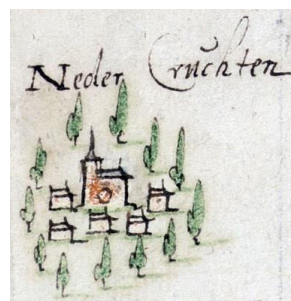 Neder Cruchten